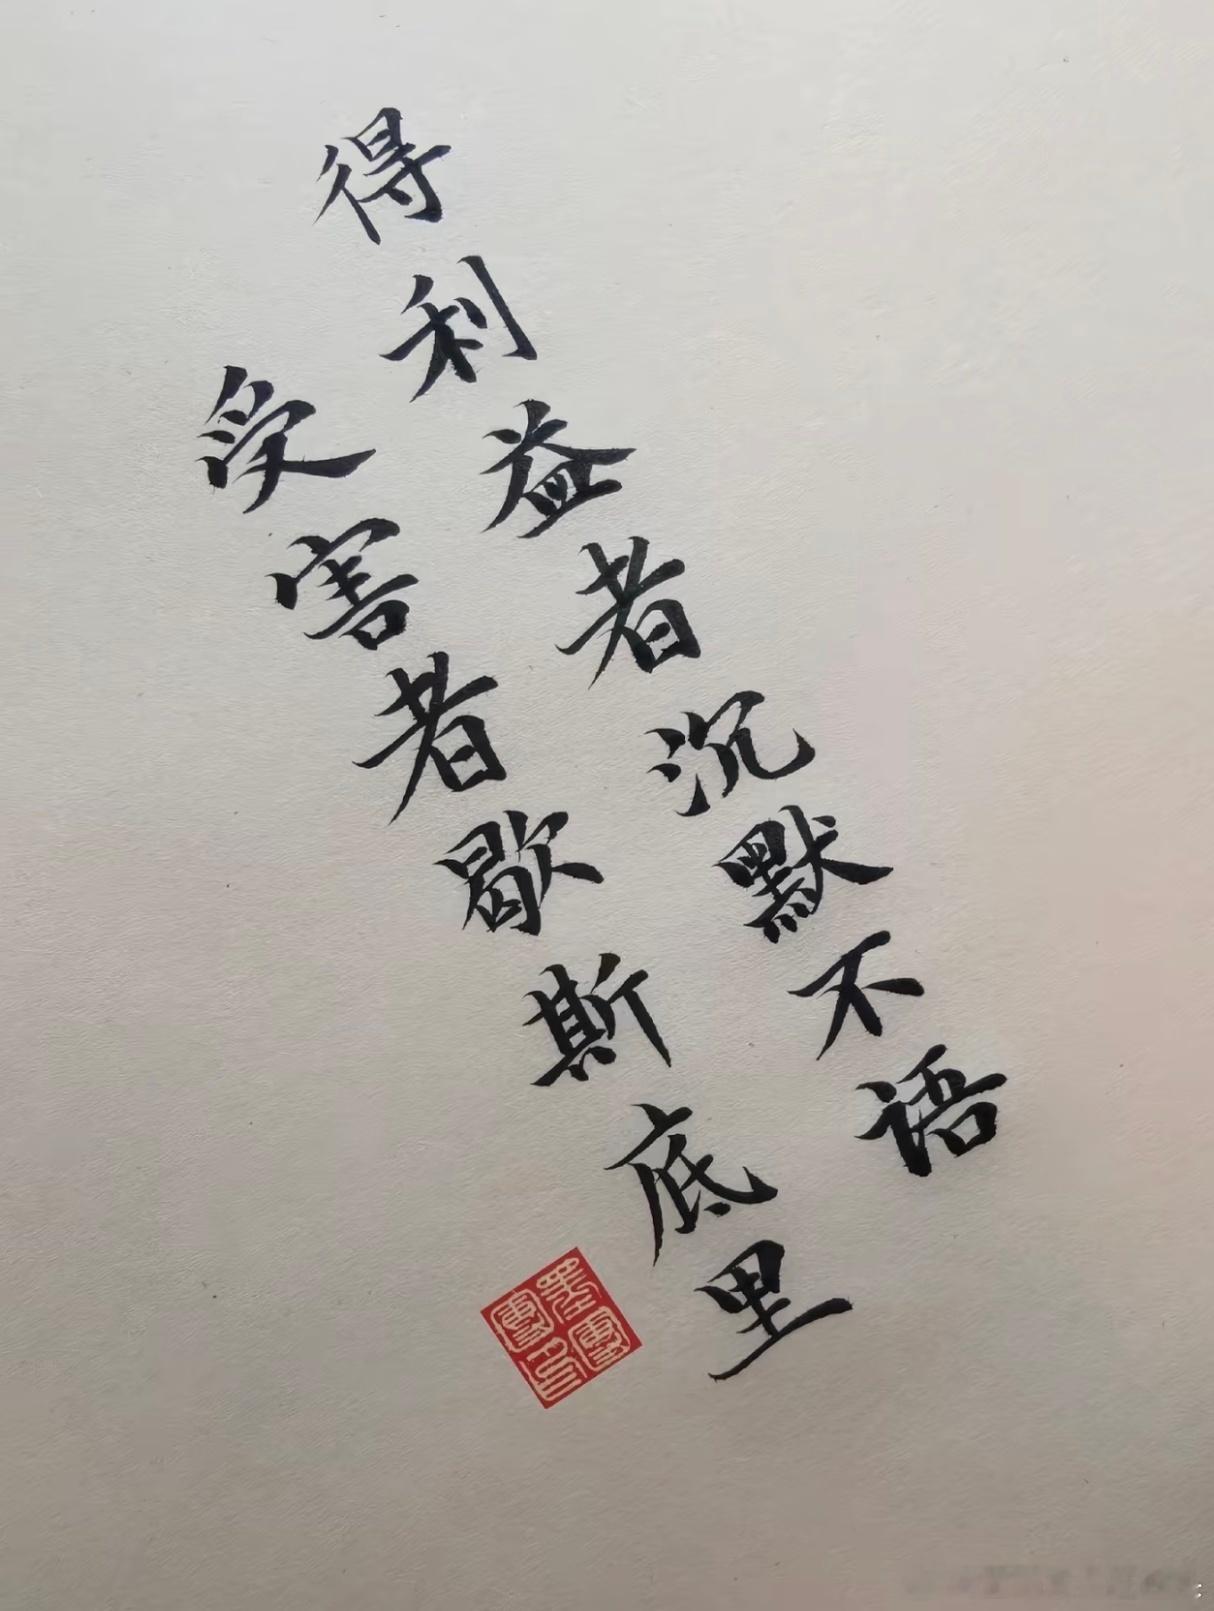 得利益者沉默不语
受害者歇斯底里